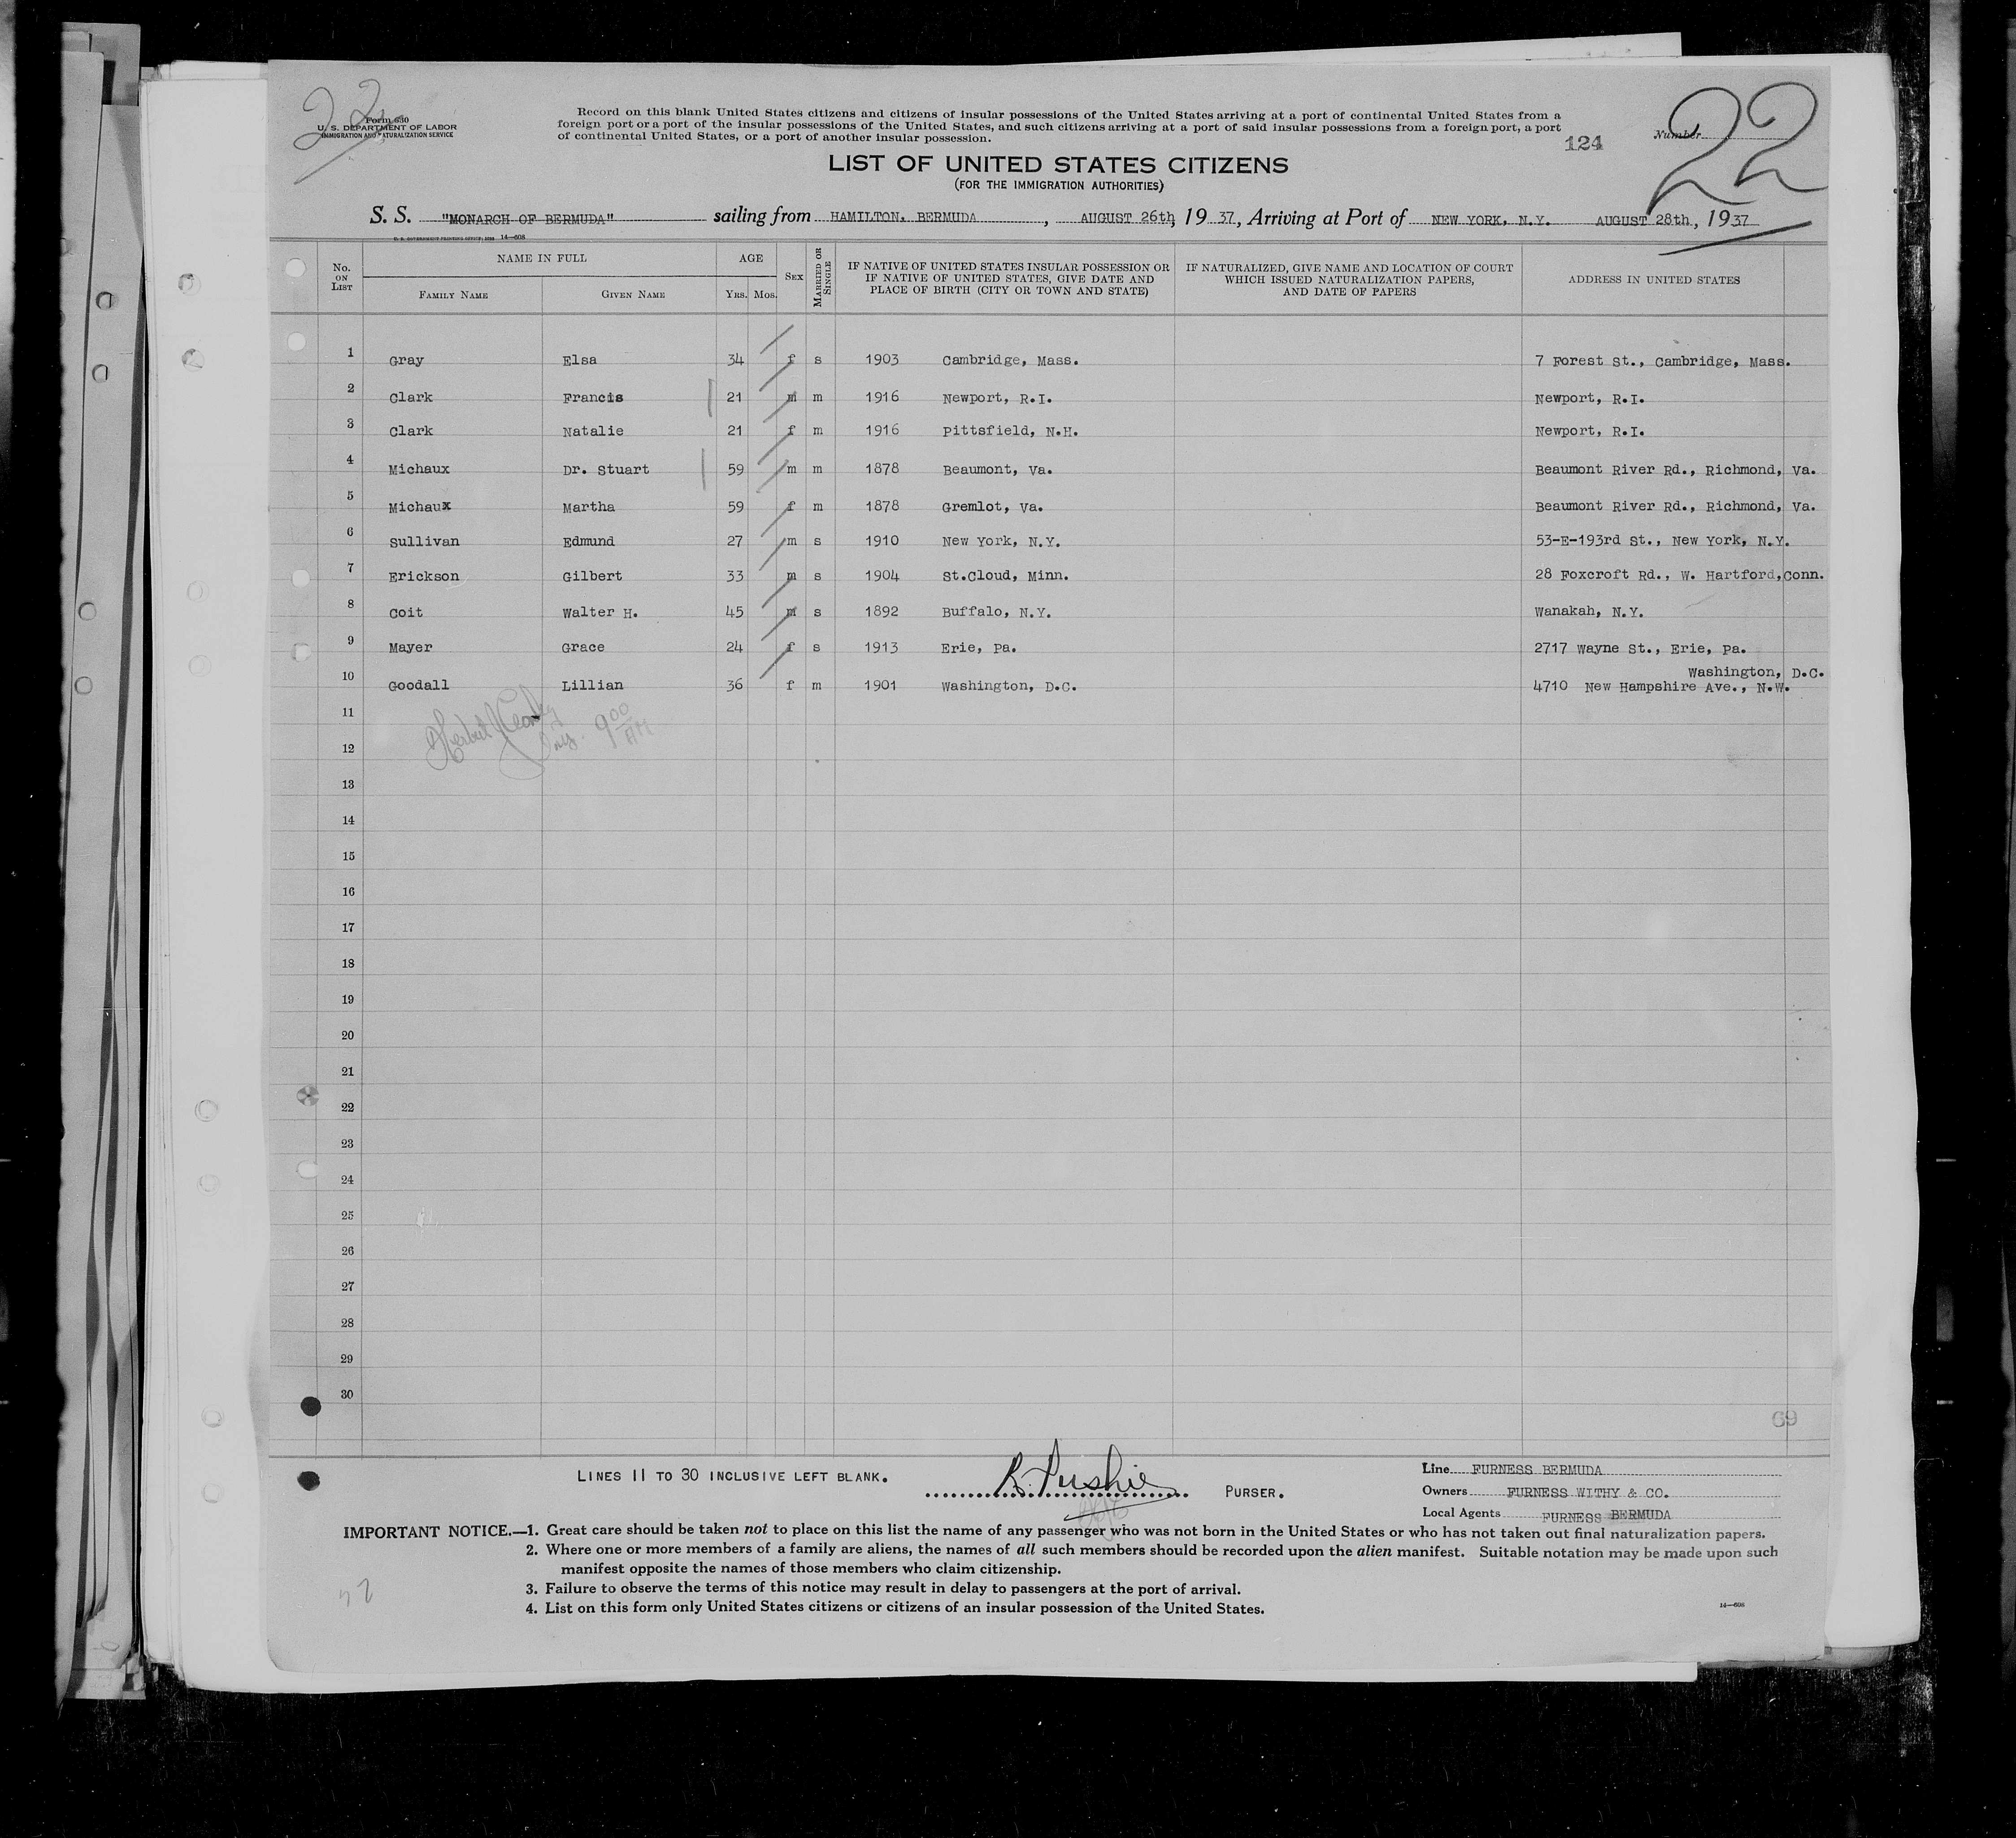 22
Form 630
U. S. DEPARTMENT OF LABOR
IMMIGRATION AND NATURALIZATION SERVICE
Record on this blank United States citizens and citizens of insular possessions of the United States arriving at a port of continental United States from a
foreign port or a port of the insular possessions of the United States, and such citizens arriving at a port of said insular possessions from a foreign port, a port
of continental United States, or a port of another insular possession.
124
Number 22
LIST OF UNITED STATES CITIZENS
(FOR THE IMMIGRATION AUTHORITIES)
S. S. "MONARCH OF BERMUDA" sailing from HAMILTON, BERMUDA, AUGUST 26th, 1937, Arriving at Port of NEW YORK, N.Y. AUGUST 28th, 1937
U. S. GOVERNMENT PRINTING OFFICE 14—608
No. ON LIST NAME IN FULL FAMILY NAME GIVEN NAME AGE YRS. MOS. SEX MARRIED OR SINGLE IF NATIVE OF UNITED STATES INSULAR POSSESSION OR IF NATIVE OF UNITED STATES, GIVE DATE AND PLACE OF BIRTH (CITY OR TOWN AND STATE) IF NATURALIZED, GIVE NAME AND LOCATION OF COURT WHICH ISSUED NATURALIZATION PAPERS, AND DATE OF PAPERS ADDRESS IN UNITED STATES
1 Gray Elsa 34 f s 1903 Cambridge, Mass. 7 Forest St., Cambridge, Mass.
2 Clark Francis 21 m m 1916 Newport, R.I. Newport, R.I.
3 Clark Natalie 21 f m 1916 Pittsfield, N.H. Newport, R.I.
4 Michaux Dr. Stuart 59 m m 1878 Beaumont, Va. Beaumont River Rd., Richmond, Va.
5 Michaux Martha 59 f m 1878 Gremlot, Va. Beaumont River Rd., Richmond, Va.
6 Sullivan Edmund 27 m s 1910 New York, N.Y. 53-E-193rd St., New York, N.Y.
7 Erickson Gilbert 33 m s 1904 St.Cloud, Minn. 28 Foxcroft Rd., W. Hartford,Conn.
8 Coit Walter H. 45 m s 1892 Buffalo, N.Y. Wanakah, N.Y.
9 Mayer Grace 24 f s 1913 Erie, Pa. 2717 Wayne St., Erie, Pa.
Washington, D.C.
10 Goodall Lillian 36 f m 1901 Washington, D.C. 4710 New Hampshire Ave., N.W.
11
Herbert
Ins. 9 00 AM
12
13
14
15
16
17
18
19
20
21
22
23
24
25
26
27
28
29
30
69
LINES 11 TO 30 INCLUSIVE LEFT BLANK.
R. Pushie PURSER.
Line FURNESS BERMUDA
Owners FURNESS WITHY & CO.
Local Agents FURNESS BERMUDA
IMPORTANT NOTICE.—1. Great care should be taken not to place on this list the name of any passenger who was not born in the United States or who has not taken out final naturalization papers.
2. Where one or more members of a family are aliens, the names of all such members should be recorded upon the alien manifest. Suitable notation may be made upon such
manifest opposite the names of those members who claim citizenship.
3. Failure to observe the terms of this notice may result in delay to passengers at the port of arrival.
4. List on this form only United States citizens or citizens of an insular possession of the United States.
14—608